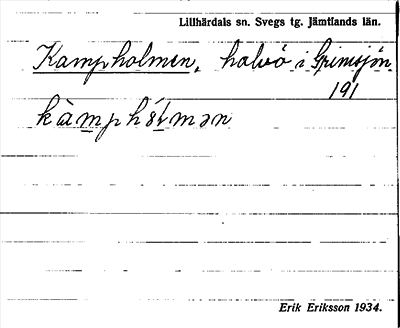 Lillhärdals sn. Svegs tg. Jämtlands län.
Kampholmen, halvö i Grimsjön
191
kàmphɷ́lmən
Erik Eriksson 1934.